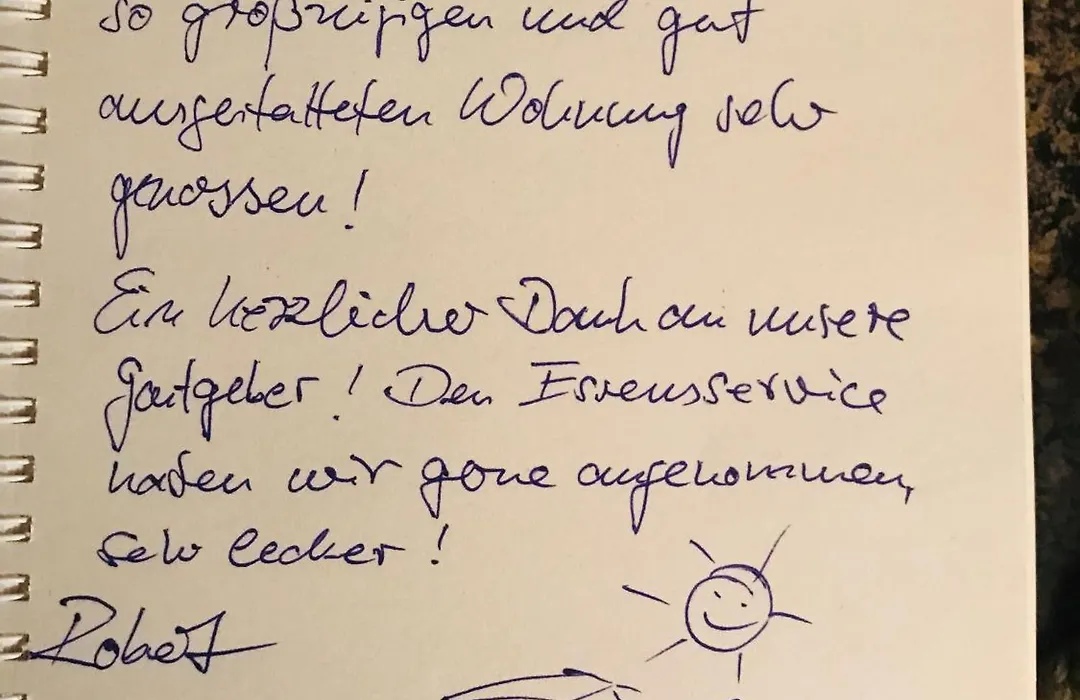 so großzügigen und gut
ausgestatteten Wohnung sehr
genossen!
Ein herzlicher Dank an unsere
Gastgeber! Den Essensservice
haben wir gerne angenommen,
sehr lecker!
Robert